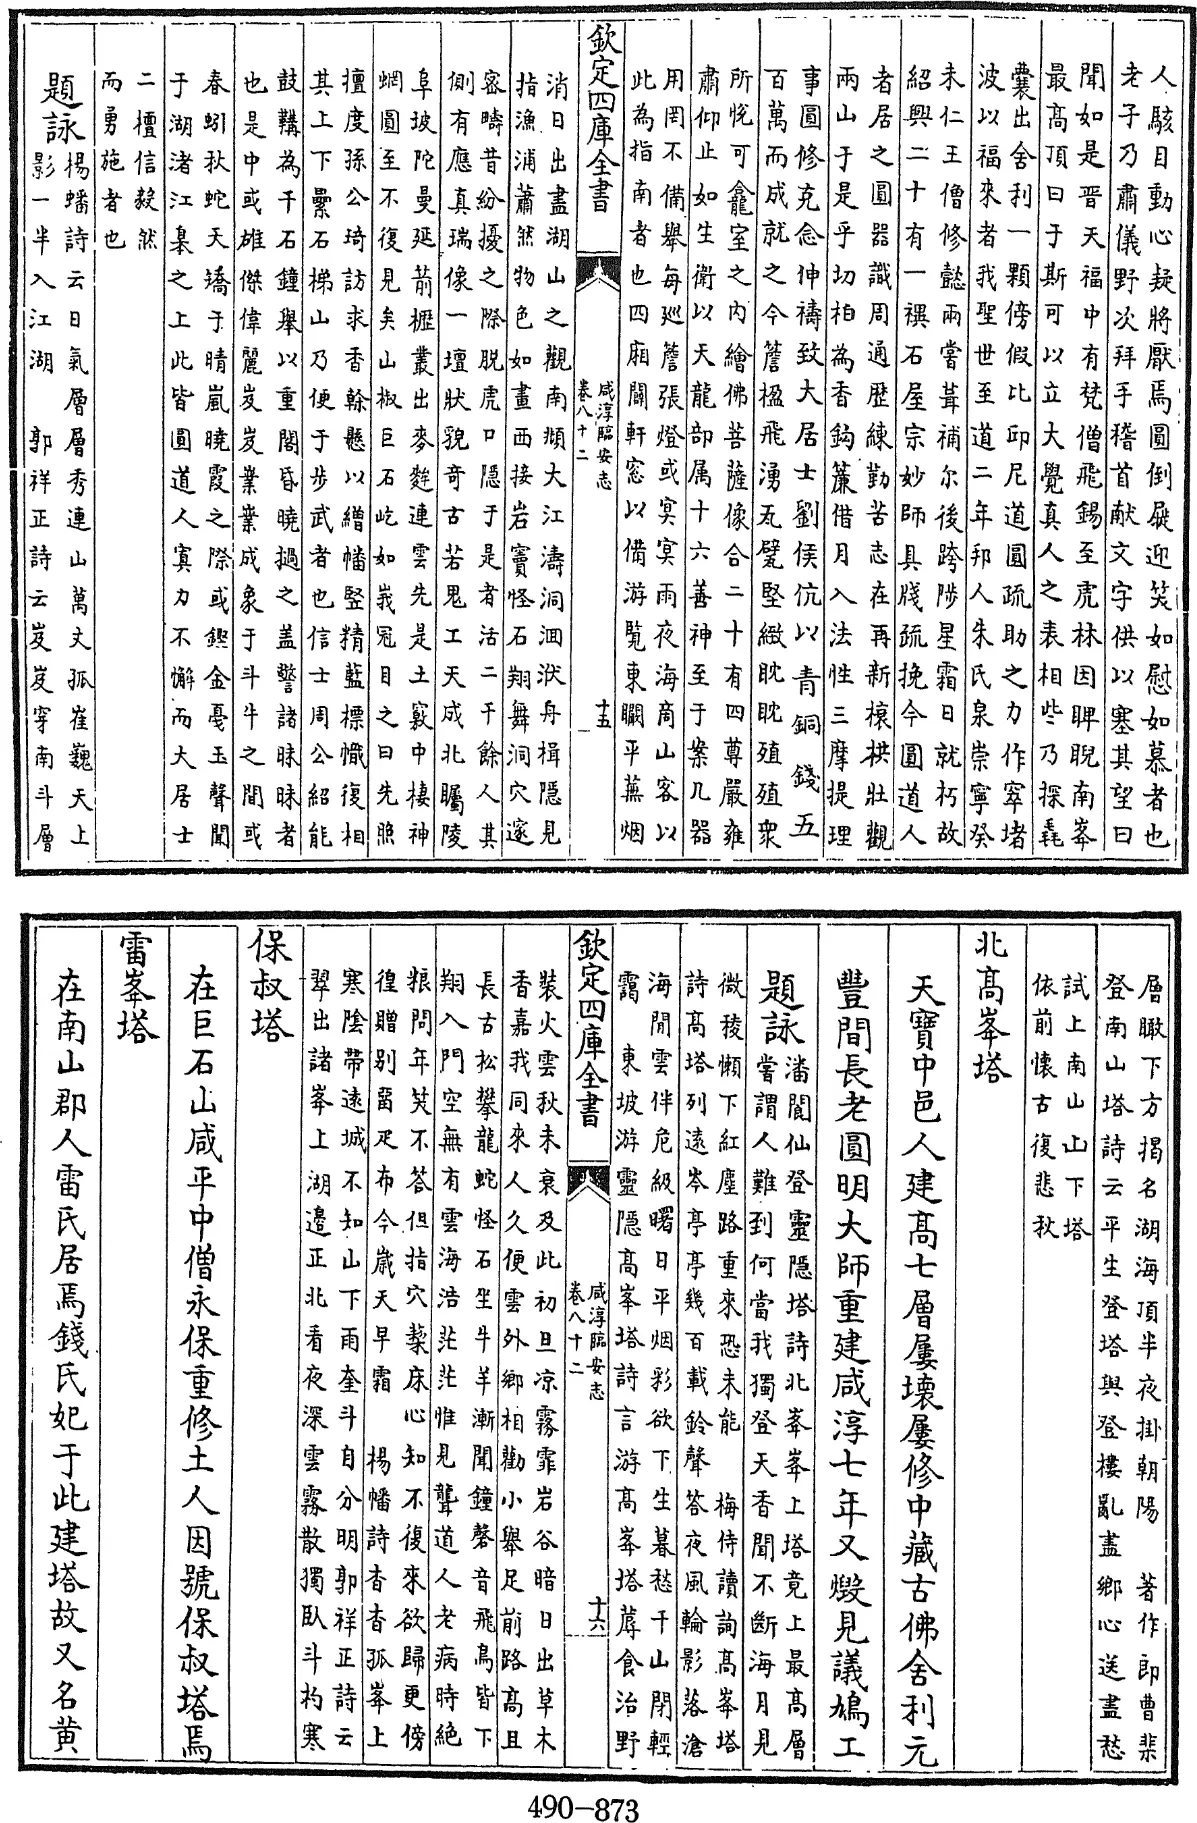 人駭目動心疑將厭焉圓倒屣迎笑如慰如慕者也
老子乃肅儀野次拜手稽首獻文字供以塞其望曰
聞如是晉天福中有梵僧飛錫至虎林因睥睨南峯
最髙頂曰于斯可以立大覺真人之表相些乃探毳
囊出舍利一顆傍假比邱尼道圓疏助之力作窣堵
波以福來者我聖世至道二年邦人朱氏泉崇寧癸
未仁王僧修懿兩嘗葺補尔後跨陟星霜日就朽故
紹興二十有一禩石屋宗妙師具牋疏挽今圓道人
者居之圓器識周通歴練勤苦志在再新榱栱壯觀
兩山于是乎切柏為香鈎簾借月入法性三摩提理
事圓修克念伸禱致大居士劉侯伉以青銅錢五
百萬而成就之今簷楹飛湧瓦甓堅緻眈眈殖殖衆
所恱可龕室之内繪佛菩薩像合二十有四尊嚴雍
肅仰止如生衛以天龍部属十六善神至于案几器
用罔不備舉每廵簷張燈或冥冥雨夜海商山客以
此為指南者也四廂闢軒窓以備游覧東矙平蕪烟
欽定四庫全書
咸淳臨安志
卷八十二
十五
消日出盡湖山之觀南頫大江濤洞洄洑舟楫隠見
指漁浦蕭然物色如畫西接岩竇怪石翔舞洞穴邃
宻疇昔紛擾之際脱虎口隠于是者活二千餘人其
側有應真瑞像一壇狀貌奇古若鬼工天成北矚陵
阜玻陀曼延莭櫪叢出麥麰連雲先是土竅中棲神
蜩圓至不復見矣山椒巨石屹如峩冠目之曰先照
擅度孫公琦訪求香榦懸以繒幡竪精藍標幟復相
其上下纍石梯山乃便于步武者也信士周公紹能
鼓鞲為千石鐘舉以重閣昏曉撾之盖警諸昧昧者
也是中或雄傑偉麗岌岌業業成象于斗牛之間或
春蚓秋蛇夭矯于晴嵐曉霞之際或鏗金戞玉聲聞
于湖渚江臯之上此皆圓道人寘力不懈而大居士
二檀信毅然
而勇施者也
題詠
楊蟠詩云日氣層層秀連山萬丈孤崔巍天上
影一半入江湖　郭祥正詩云岌岌穿南斗層
層瞰下方揭名湖海頂半夜掛朝陽　著作郎曹棐
登南山塔詩云平生登塔與登樓亂盡鄉心送盡愁
試上南山山下塔
依前懷古復悲秋
北髙峯塔
天寶中邑人建髙七層屢壊屢修中藏古佛舍利元
豐間長老圓明大師重建咸淳七年又燬見議鳩工
題詠
潘閬仙登靈隠塔詩北峯峯上塔竟上最髙層
嘗謂人難到何當我獨登天香聞不斷海月見
微稜懶下紅塵路重來恐未能　梅侍讀詢髙峯塔
詩髙塔列遠岑亭亭幾百載鈴聲答夜風輪影落滄
海閒雲伴危級曙日平烟彩欲下生暮愁千山閉輕
靄　東坡游靈隠髙峯塔詩言游髙峯塔蓐食治野
欽定四庫全書
咸淳臨安志
卷八十二
十六
裝火雲秋未衰及此初旦凉霧霏岩谷暗日出草木
香嘉我同來人久便雲外鄉相勸小舉足前路髙且
長古松攀龍蛇怪石坐牛羊漸聞鐘磬音飛鳥皆下
翔入門空無有雲海浩茫茫惟見聾道人老病時絶
粮問年笑不答但指穴藜床心知不復來欲歸更傍
徨贈别畱疋布今歳天早霜　楊幡詩杳杳孤峯上
寒陰帶遠城不知山下雨奎斗自分明郭祥正詩云
翠出諸峯上湖邉正北看夜深雲霧散獨臥斗杓寒
保叔塔
在巨石山咸平中僧永保重修土人因號保叔塔焉
雷峯塔
在南山郡人雷氏居焉錢氏妃于此建塔故又名黄
490-873